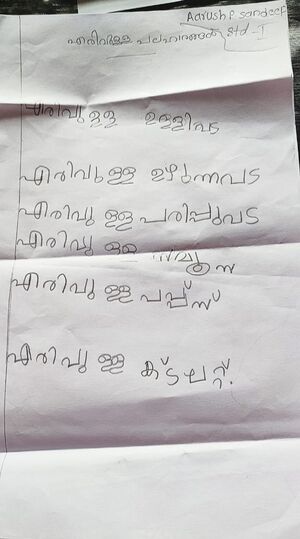 Aarush P. Sandeep
Std - I
എരിവുള്ള പലഹാരങ്ങൾ
എരിവുള്ള ഉള്ളിവട
എരിവുള്ള ഉഴുന്നവട
എരിവുള്ള പരിപ്പുവട
എരിവുള്ള
എരിവുള്ള പപ്പ്സ്
എരിവുള്ള കട്ലറ്റ്.